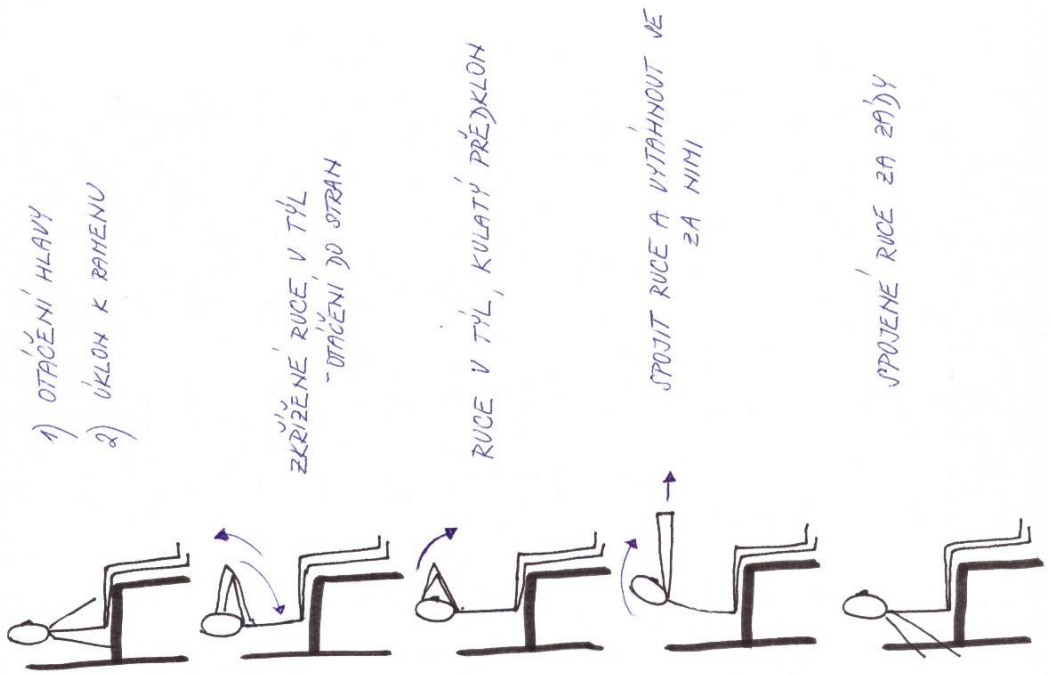 1) OTÁČENÍ HLAVY
2) ÚKLON K RAMENU
ZKŘÍŽENÉ RUCE V TÝL
- OTÁČENÍ DO STRAN
RUCE V TÝL, KULATÝ PŘEDKLON
SPOJIT RUCE A VYTÁHNOUT SE
ZA NIMI
SPOJENÉ RUCE ZA ZÁDY